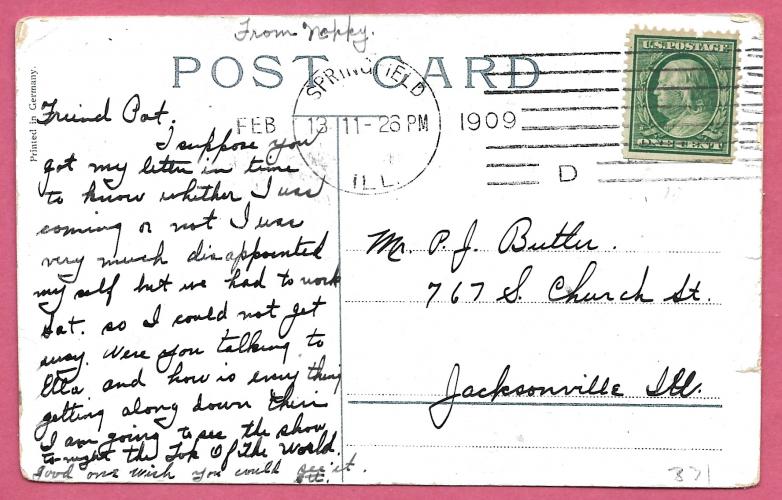 From Noppy.
POST CARD
Printed in Germany.
SPRINGFIELD
FEB 13 11-26 PM 1909
ILL.
D
U.S. POSTAGE
ONE CENT
Friend Pat.
I suppose you
got my letter in time
to know whether I was
coming or not I was
very much disappointed
my self but we had to work
Sat. so I could not get
away. Were you talking to
Etta and how is every thing
getting along down there
I am going to see the show
to-night the Top Of The World.
good one wish you could see it.
Mr. P. J. Butler.
767 S. Church St.
Jacksonville Ill.
371